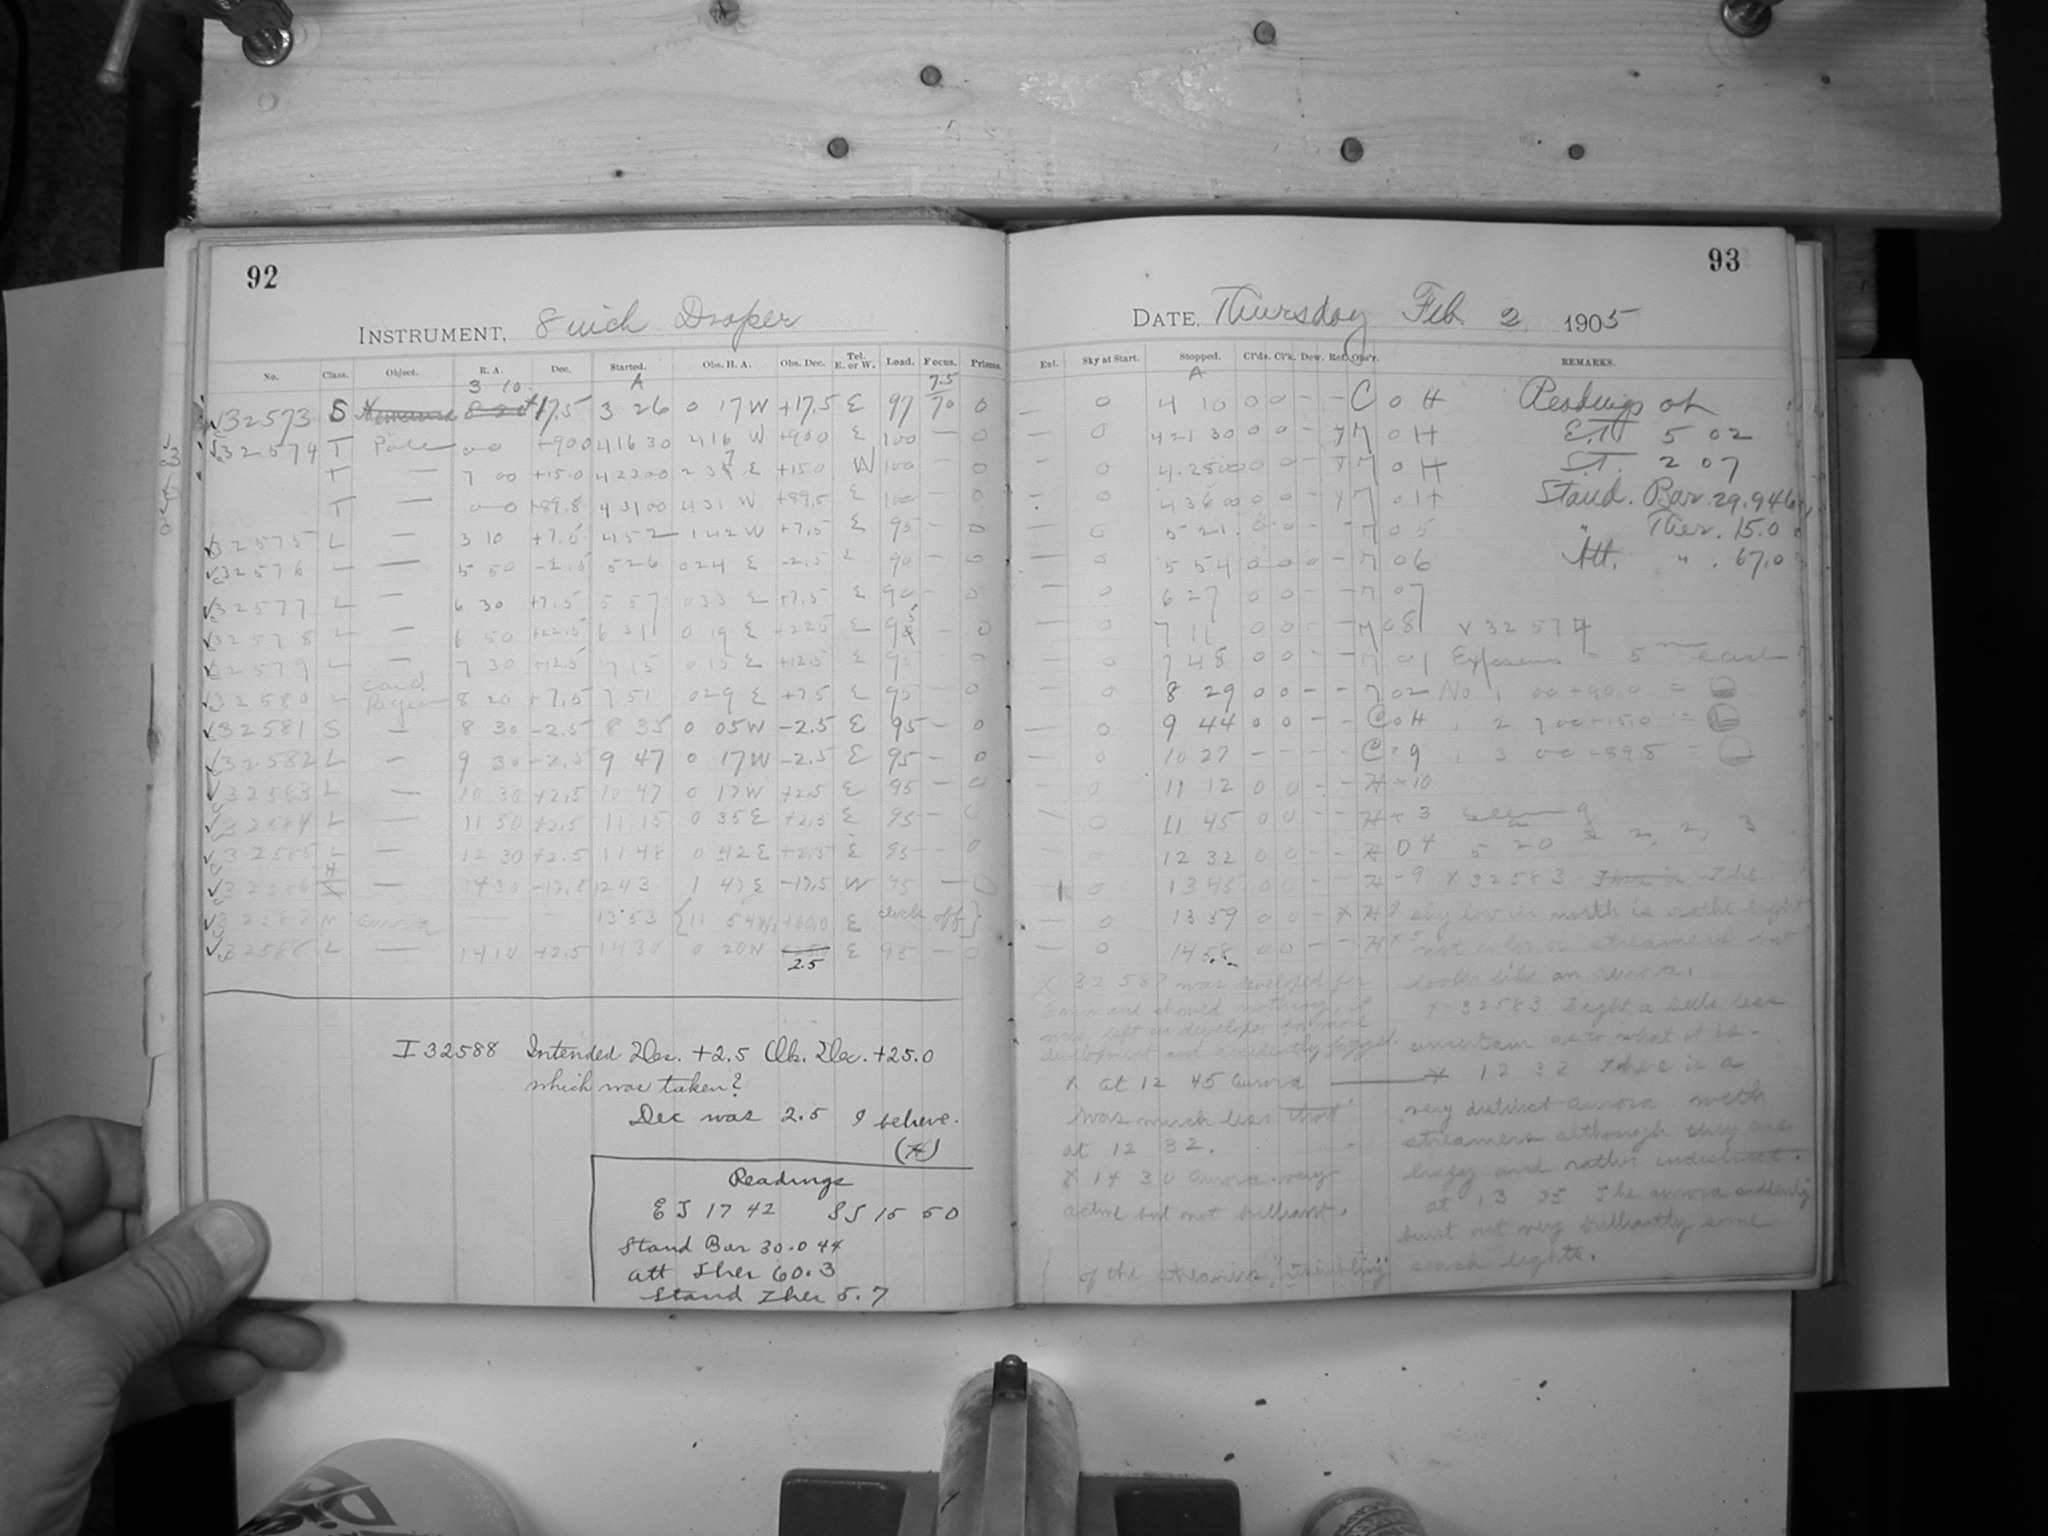 92
INSTRUMENT, 8 inch Draper
No. Class. Object. R. A. Dec. Started. Obs. H. A. Obs. Dec. Tel. E. or W. Load. Focus. Prisms.
3 10 A 7.5
32573 S 17.5 3 26 0 17 W +17.5 E 97 70 0
32574 T Pole 00 +900 41630 416 W +900 E 100 — 0
T — 7 00 +15.0 42300 E +15.0 W 100 — 0
T — 00 +89.8 43100 431 W +89.5 E 100 — 0
32575 L — 3 10 +7.5 452 142 W +7.5 E 95 — 0
32576 L — 5 50 -2.5 526 024 E -2.5 90 — 0
32577 L — 6 30 +7.5 557 033 E +7.5 E 90 — 0
32578 L — 6 50 +22.5 631 0 19 E +225 E — 0
32579 L — 7 30 +12.5 715 015 E +12.5 E 95 — 0
32580 L Region 8 20 +7.5 751 029 E +7.5 E 95 — 0
32581 S — 8 30 -2.5 8 35 0 05 W -2.5 E 95 — 0
32582 L — 9 30 -2.5 9 47 0 17 W -2.5 E 95 — 0
32583 L — 10 30 +2.5 10 47 0 17 W +2.5 E 95 — 0
32584 L — 11 50 +2.5 11 15 0 35 E +2.5 E 95 — 0
32585 L — 12 30 +2.5 11 48 0 42 E +2.5 E 95 — 0
32586 H — 14 30 -17.5 1243 1 47 E -17.5 W 95 — 0
32587 aurora — — 13 53 {11 54 W +60.0 E clock off}
32588 L — 14 10 +2.5 14 30 0 20 W E 95 — 0
2.5
I 32588 Intended Dec. +2.5 Obs. Dec. +25.0
which was taken?
Dec was 2.5 I believe.
(H)
Readings
E T 17 42 S T 15 50
Stand Bar 30.044
att Ther 60.3
Stand Ther 5.7
93
DATE, Thursday Feb. 2 1905
Enl. Sky at Start. Stopped. Cl'ds. Cl'k. Dew. Ref. Obs'r. REMARKS.
A
— 0 4 10 0 0 – – C 0 H Readings at
— 0 421 30 0 0 – 0 H E.T. 5 02
— 0 4.2500 0 0 – 0 H S.T. 2 07
- 0 43600 0 0 – 0 H Stand. Bar. 29.946
— 0 5 21. 0 0 – – 0 5 " Ther. 15.0
— 0 5 54 0 0 0 – 06 Att. " . 67.0
— 0 6 27 0 0 – – 07
— 0 7 11 0 0 – – 08 x 32574
— 0 7 48 0 0 – – 01 Exposures = 5 each
— 0 8 29 0 0 – – 02 No 1 00 +90.0 =
— 0 9 44 0 0 – – C 0 H " 2 7 00 +15.0 =
— 0 10 27 – – – – C 9 " 3 00 +89.8 =
— 0 11 12 0 0 – – H x 10
— 0 11 45 0 0 – – H x 3 seeing
— 0 12 32 0 0 – – H 0 4 5 20 = 2, 2, 3
0 13 45 0 0 – – H -9 x 32583 The
— 0 13 59 0 0 – x H x sky low in north is rather bright
— 0 14 58 0 0 – – H x 5 not color or streamers but
looks like an aurora.
X 32587 was developed for
6 min and showed nothing, it
was left in developer for more
development and accidently fogged.
x 32583 Bright a little less
uncertain as to what it is.
x at 12 45 aurora
was much less than
at 12 32.
x 14 30 aurora very
active but not brilliant.
x 12 32 There is a
very distinct aurora with
streamers although they are
hazy and rather indistinct.
at 13 35 The aurora suddenly
burst out very brilliantly some
of the streamers search lights.